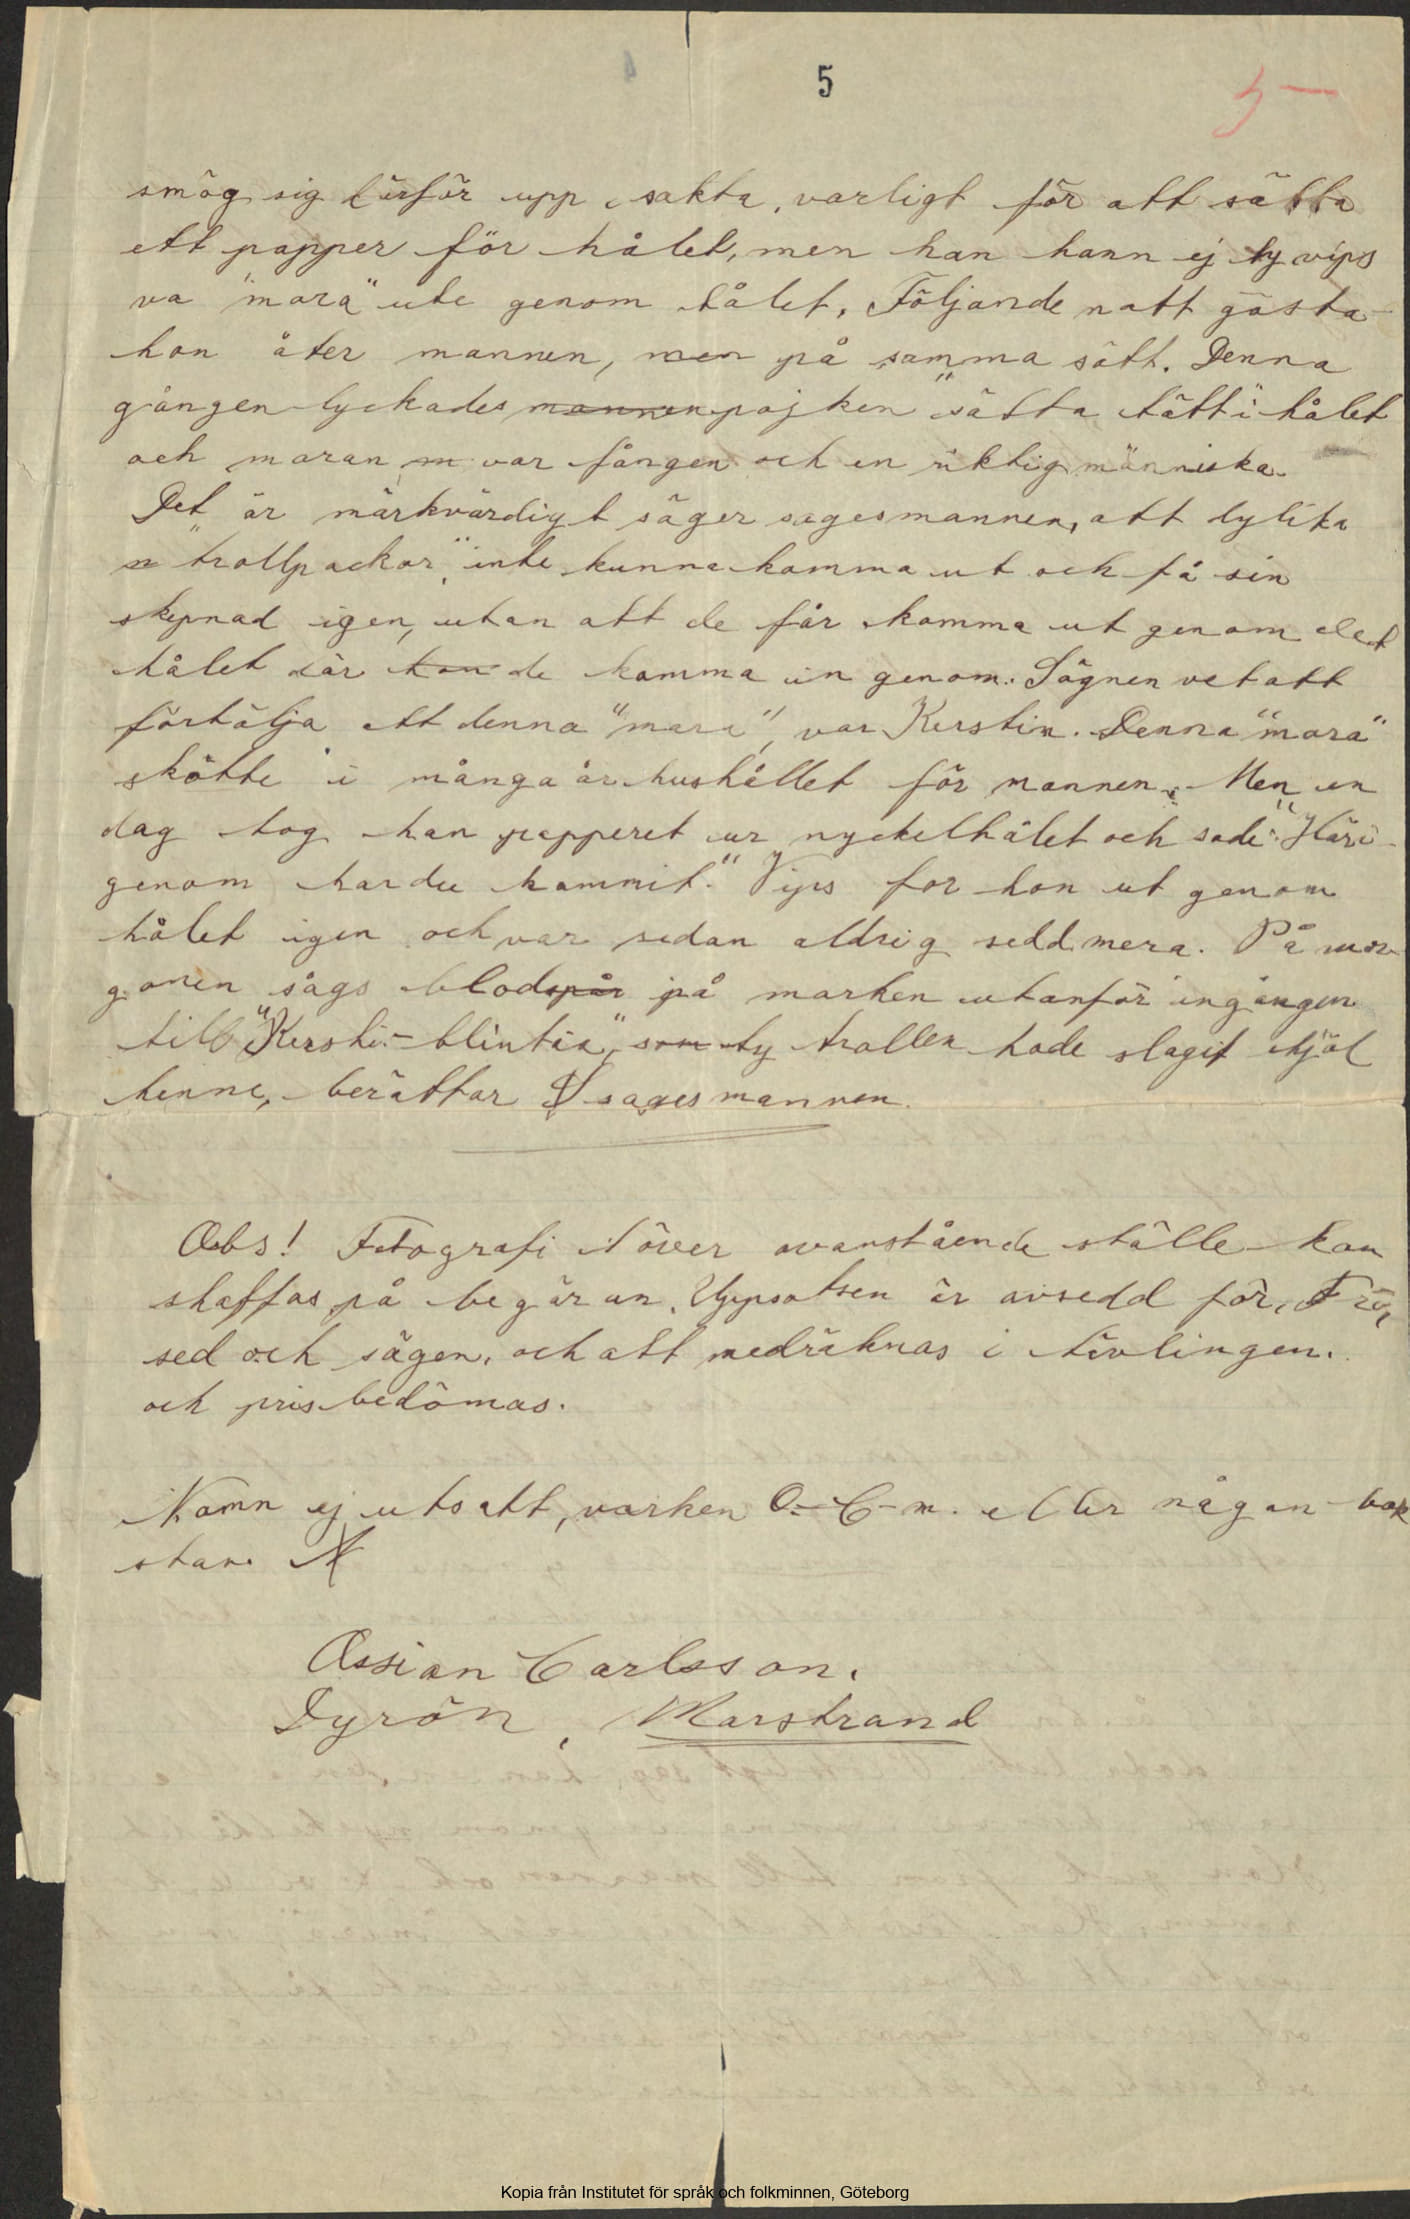 5
5
smög sig därför upp sakta, varligt för att sätta
ett papper för hålet, men han hann ej ty vips
va "mara" ute genom hålet. Följande natt gästa-
hon åter mannen, men på samma sätt. Denna
gången lyckades mannen pojken "sätta tätt i hålet
och maran m var fången och en riktig människa.
Det är märkvärdigt säger sagesmannen, att dylika
"trollpackor" inte kunna komma ut och få sin
skepnad igen, utan att de får komma ut genom det
hålet där hon de komma in genom. Sägnen vet att
förtälja att denna "mara", var Kerstin. Denna "mara"
skötte i många år hushållet för mannen. Men en
dag tog han papperet ur nyckelhålet och sade: "Häri-
genom har du kommit." Vips for hon ut genom
hålet igen och var sedan aldrig sedd mera. På mor-
gonen sågs blodspår på marken utanför ingången
till "Kersti-blintia", som ty trollen hade slagit ihjäl
henne, berättar sagesmannen.
Obs! Fotografi över ovanstående ställe kan
skaffas på begäran. Uppsatsen är avsedd för, Tro,
sed och sägen, och att medräknas i tävlingen.
och prisbedömas.
Namn ej utsatt, varken O.-C-n. eller någon bok
stav. N
Ossian Carlsson.
Dyrön, Marstrand
Kopia från Institutet för språk och folkminnen, Göteborg